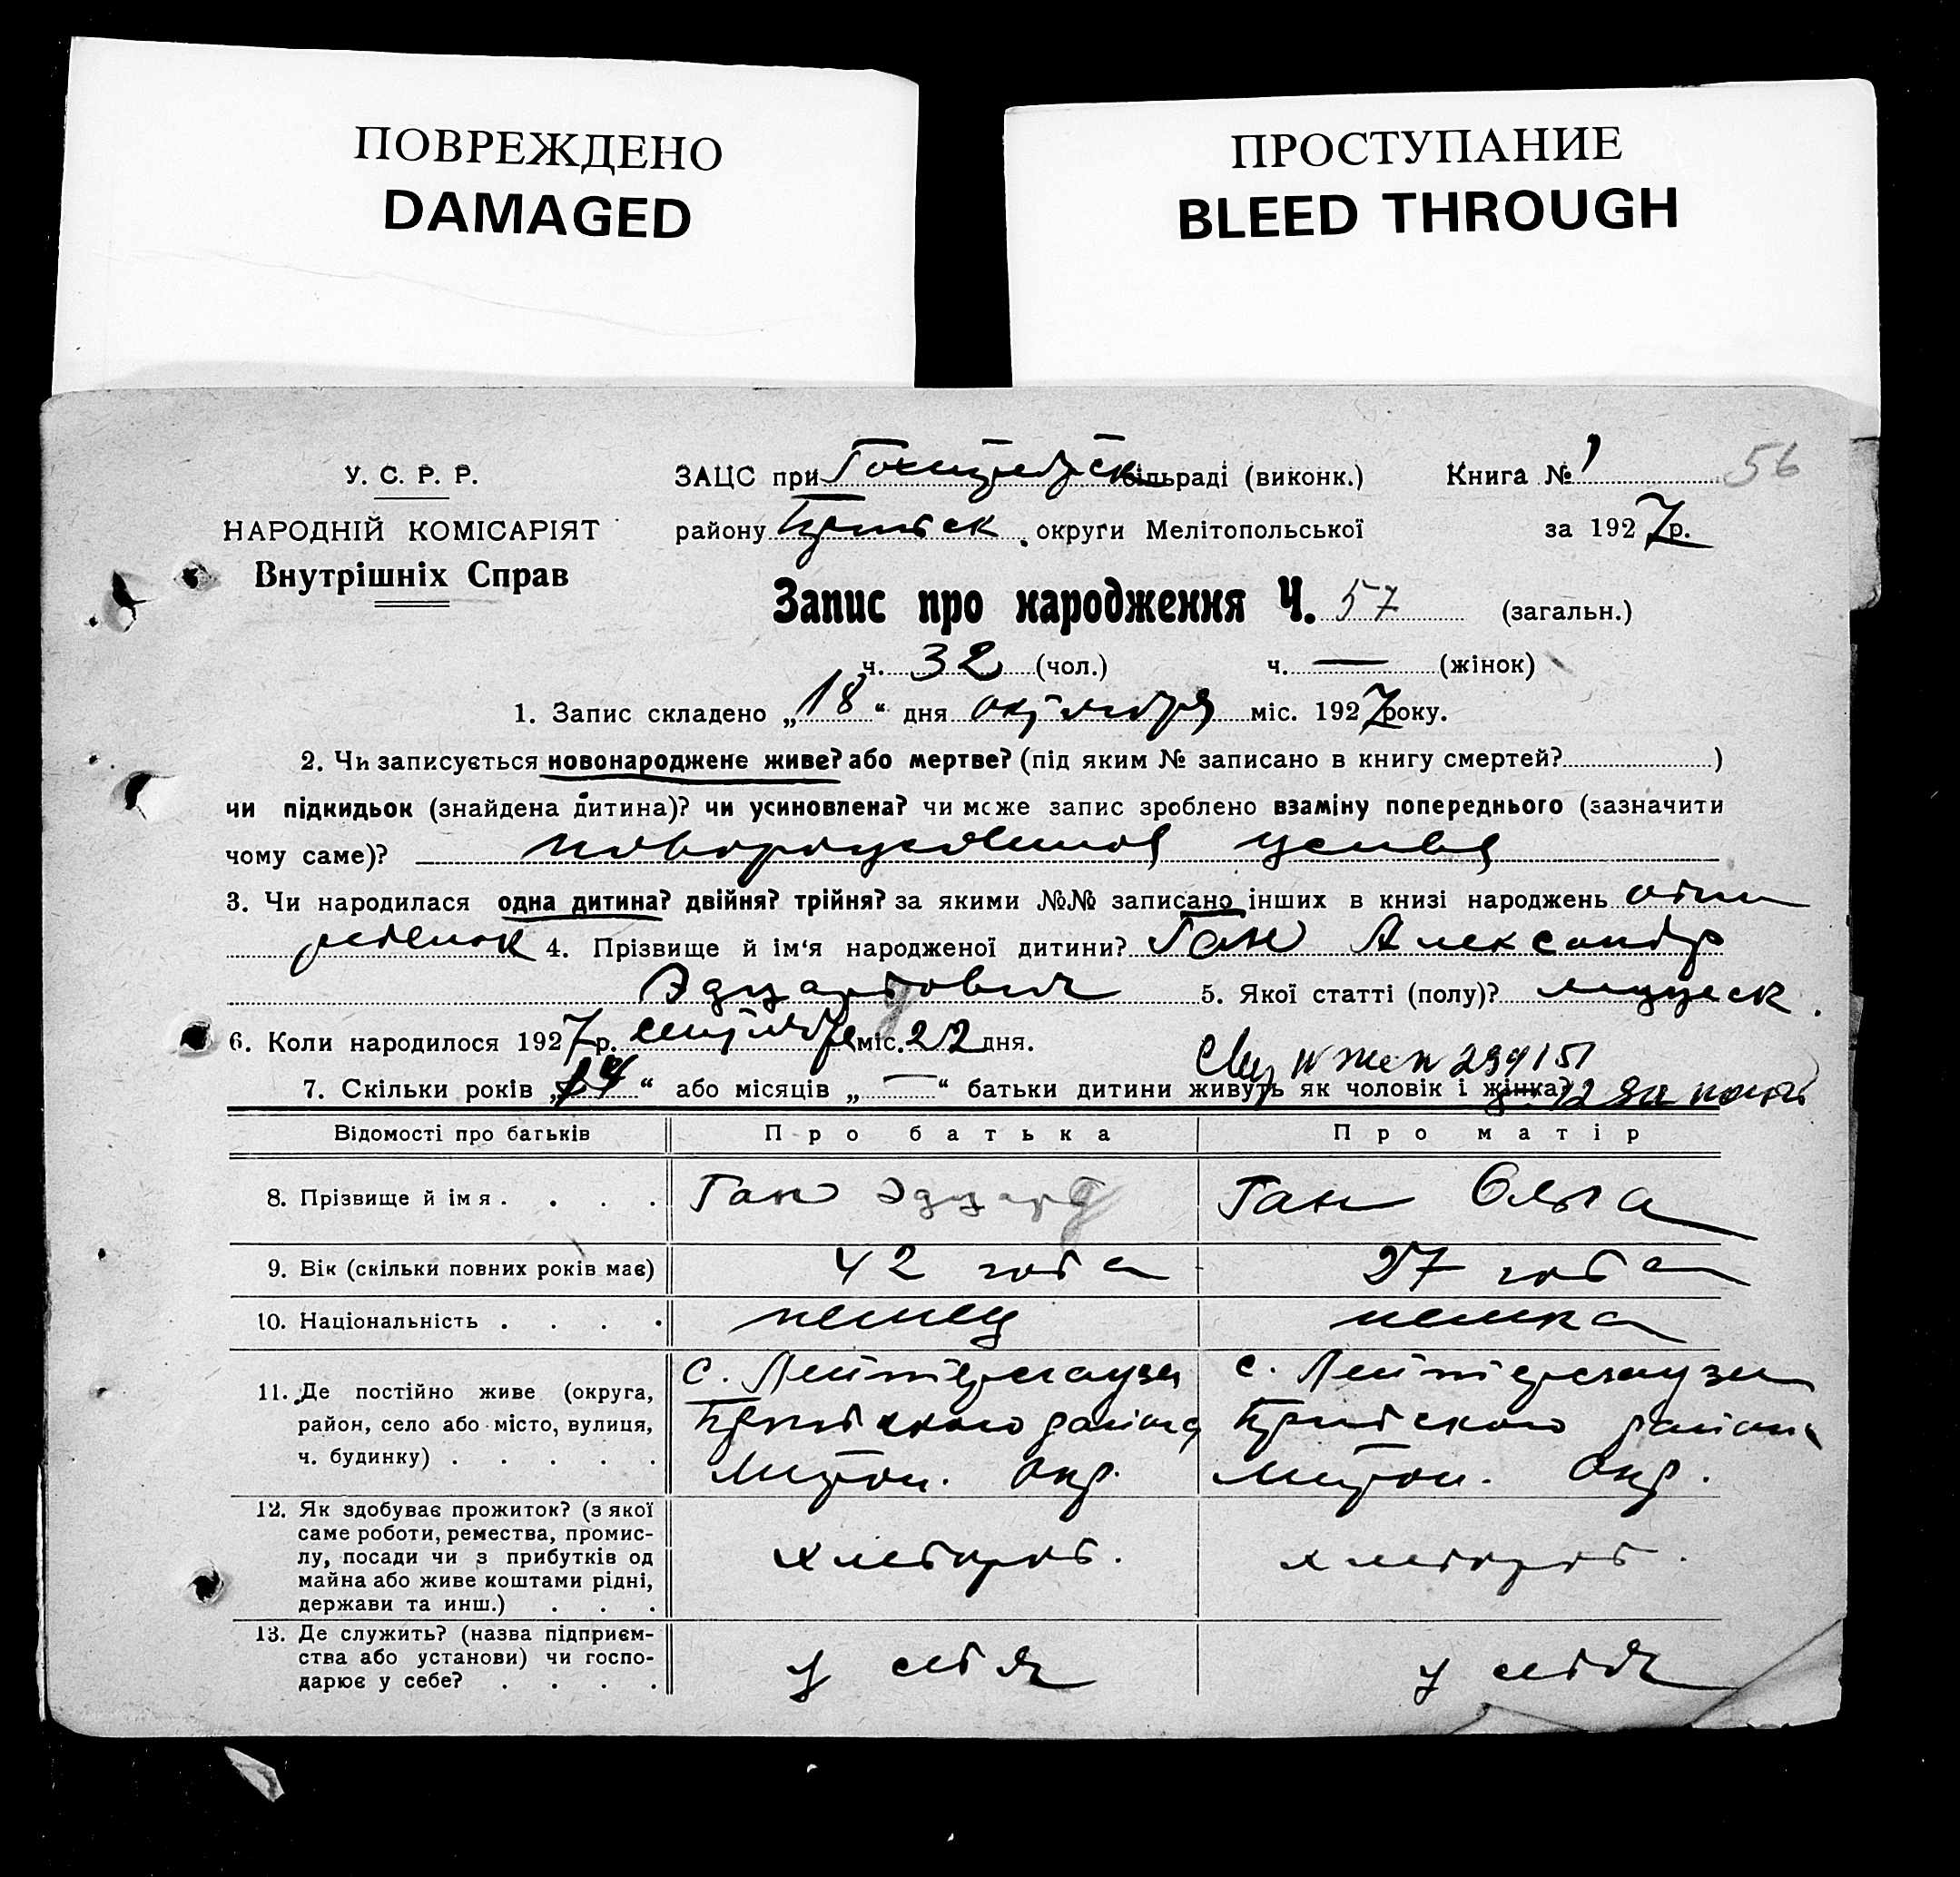 ПОВРЕЖДЕНО
DAMAGED
ПРОСТУПАНИЕ
BLEED THROUGH
У. С. Р. Р.
НАРОДНІЙ КОМІСАРІЯТ
Внутрішніх Справ
ЗАЦС при сільраді (виконк.)
Книга № 1
56
району Пришибск. округи Мелітопольської
за 1927 р.
Запис про народження Ч. 57 (загальн.)
ч. 32 (чол.) ч. — (жінок)
1. Запис складено „18“ дня октября міс. 1927 року.
2. Чи записується новонароджене живе? або мертве? (під яким № записано в книгу смертей? )
чи підкидьок (знайдена дитина)? чи усиновлена? чи може запис зроблено взаміну попереднього (зазначити
чому саме)? новорожденная живая
3. Чи народилася одна дитина? двійня? трійня? за якими №№ записано інших в книзі народжень один
ребенок 4. Прізвище й ім'я народженої дитини? Ган Александр
Эдуардович 5. Якої статті (полу)? мужск.
6. Коли народилося 1927 р. сентября міс. 22 дня.
7. Скільки років „ “ або місяців „—“ батьки дитини живуть як чоловік і жінка?
Відомості про батьків
Про батька
Про матір
8. Прізвище й імя . . . .
Ган Эдуард
Ган Ольга
9. Вік (скільки повних років має)
42 года
27 года
10. Національність . . . .
немец
немка
11. Де постійно живе (округа,
район, село або місто, вулиця,
ч. будинку) . . . . .
с. Лейтерсгаузен
Пришибского района
Мелітоп. Окр.
с. Лейтерсгаузен
Пришибского района
Мелітоп. Окр.
12. Як здобуває прожиток? (з якої
саме роботи, ремества, промис-
лу, посади чи з прибутків од
майна або живе коштами рідні,
держави та инш.) . . .
хлебороб.
хлебороб.
13. Де служить? (назва підприєм-
ства або установи) чи госпо-
дарює у себе? . . . .
у себя
у себя